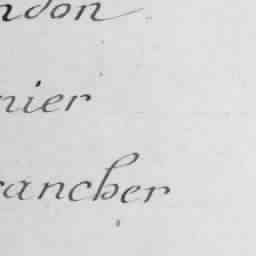 ndon
nier
rancher